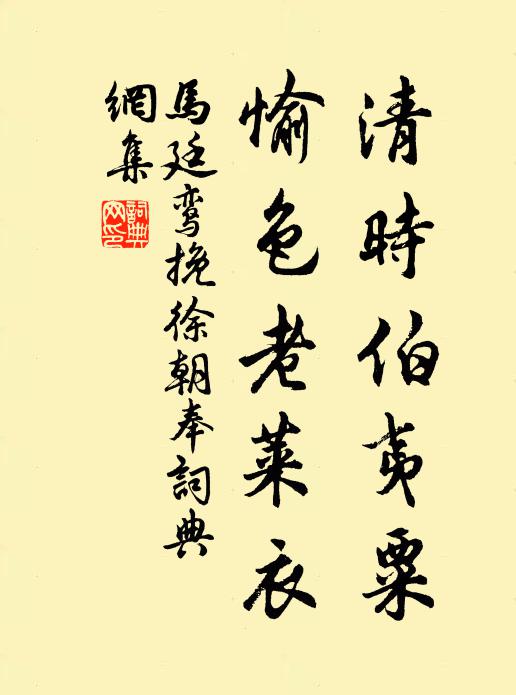 清時伯夷粟
愉色老萊衣
馬廷鸞挽徐朝奉詞典
網集
詞典
网印